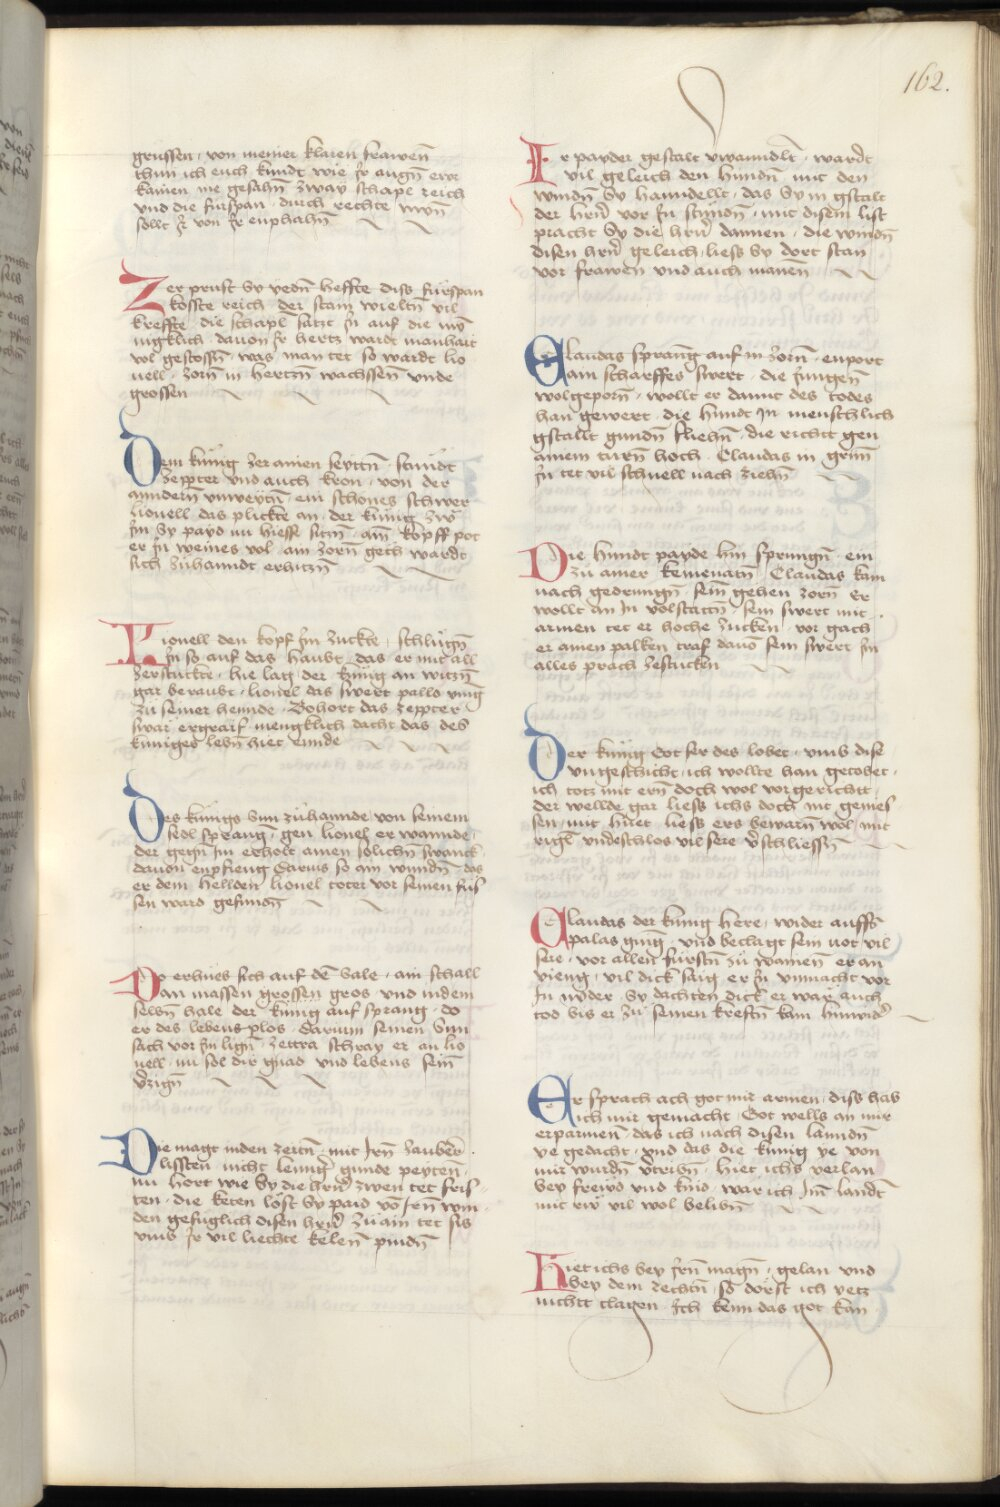 162.
grussen · von meiner klaren frawen
thun ich euch kundt wie jr augen ewr
kamen nie gesahn̄ zway schapl reich
und die furspan · durch rechte
sollt jr von jr enphahn̄
Zer prust sy yedn̄ heffte diss furspan
kosste reich der stain wieltn̄ vil
kreffte · die schapl satzt jn auf die
nigklich · dauon jr hertz wardt manhait
vol gestossn̄ · was man tet so wardt lio
nell · zorn̄ in hertzn̄ wachssen̄ unde
grossen
Dem kunig zer ainen seyttn̄ · stundt
zeppter und auch kron · von der
anndern̄ ein schones schwer
lionell das plickte an · der kunig zw̄
jm sy payd nu hiesse sitzn̄ · ain̄ kopff pot
er jn weines vol · am zorn̄ gech wardt
sich zuhanndt erhitzn̄
Lionell den kopf jm zuckte · schlugn̄
jn so auf das haubt · das er mit all
zerstuckte · hie lag der kunig an witzn̄
gar beraubt · lionel das swert pallo vnng
zu seiner hennde · Bohort das zeppter
swar ergraif · mengklich dacht das des
kuniges lebn̄ hiet ennde
Des kunigs sun zuhannde · von seinem
sedl sprang · gen lionel er wannde ·
der gegn̄ jm erholt ainen solichn̄ swanck
dauon enpfieng Darius so ain wundn̄ · das
er dem hellden lionel toter vor seinen fus
sen ward gefundn̄
Do erhues sich auf dē sale · ain schall
an massen grossen gros · und indem
selbn̄ hale der kunig auf sprang · do
er des lebens plos · Darium seinen Sun
sach vor jm lign̄ · zettra schray er an lio
nell · nu sol dir gnad und lebens sein
v̄zign̄
Die magt inden zeitn̄ · mit Irn̄ zauber
lissten nicht lenng' gunde peyten ·
nu hort wie sy die hrn̄ zwen tet fris
ten · die keten lost sy paid vō Irn̄ win
den gefuglich disen hrn̄ zu ain tet sis
umb jr vil liechte kelen̄ pindn̄
Ir payder gestalt v̄wanndlt · wardt
vil geleich den hundn̄ · mit den
windn̄ sy hanndellt · das sy in gstalt
der hrn̄ vor jn stundn̄ · mit disem list
pracht sy die hrn̄ dannen · die windn̄
disen hrn̄ geleich · liess sy dort stan
vor frawen und auch manen̄
Claudas sprang auf in zorn̄ · enport
ain scharffes swert · die jungen̄
wolgeporn̄ · wollt er damit des todes
han gewert · die hundt in menschlich
gstallt gundn̄ fliehn̄ · die richtt gen
ainem turn̄ hoch · Claudas in grim̄
jn tet vil schnell nach ziehn̄
Die hundt payde hin sprungn̄ · ein
zu ainer kemenatn̄ · Claudas kam
nach gedrungn̄ · sein̄ gehen zorn̄ Er
wollt an In volstattn̄ · sein swert mit
armen tet er hoche zucken · vor gach
er ainen palken traf dauō sein swert jm
alles prach zestucken
Der kunig Got ser des lobet · umb dise
ungeschicht · ich wollte han getobet ·
ich totz mit ern̄ doch wol vor gerichtt ·
der wellde gar liess ichs doch nit genies
sen · mit huet · liess ers bewarn̄ wol · mit
rigl̄ undeschlos vil sere v̄schliessn̄
Claudas der kunig here · wider auffs
palas ging · und beclagt sein not vil
sere · vor allen fürstn̄ zu wainen er an
vieng · vil dick saig er jn unmacht vor
In nider · sy dachten dick er wär auch
tod bis er zu seinen kreftn̄ kam hinwid'
Er sprach ach got mir armen · diss hab
ich mir gemacht · Got wells an mir
erparmen · das ich nach disen lanndn̄
ye gedacht · und das die kunig ye von
mir wurdn̄ v̄tribn̄ · hiet ichs verlan
bey freyd und kind · war ich Im̄ landt
mit eir vil wol belibn̄
Hiet ichs bey jrn̄ magn̄ · gelan und
bey dem rechtn̄ · so dorst ich yetz
nichtt clagen · Ich kenn das got kan